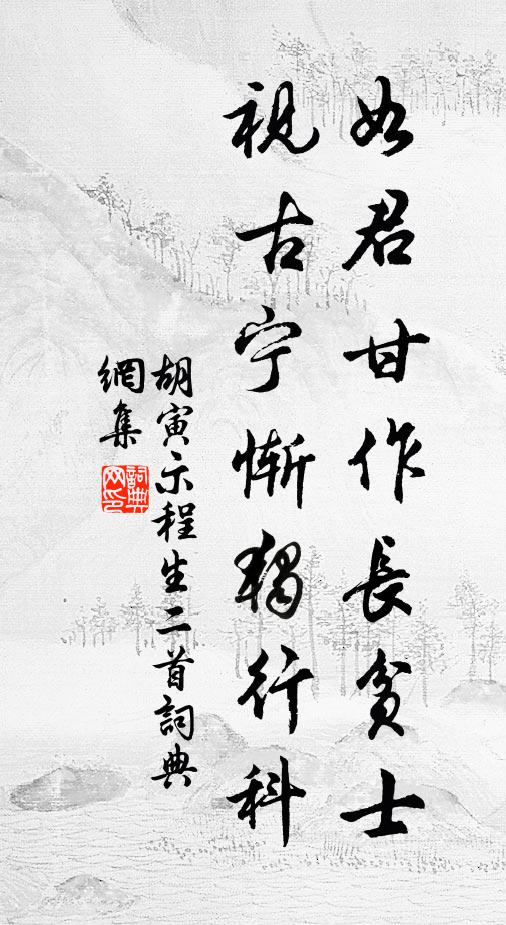 如君甘作長貧士
視古宁慚獨行科
胡寅示程生二首詞典
網集
詞典
网印